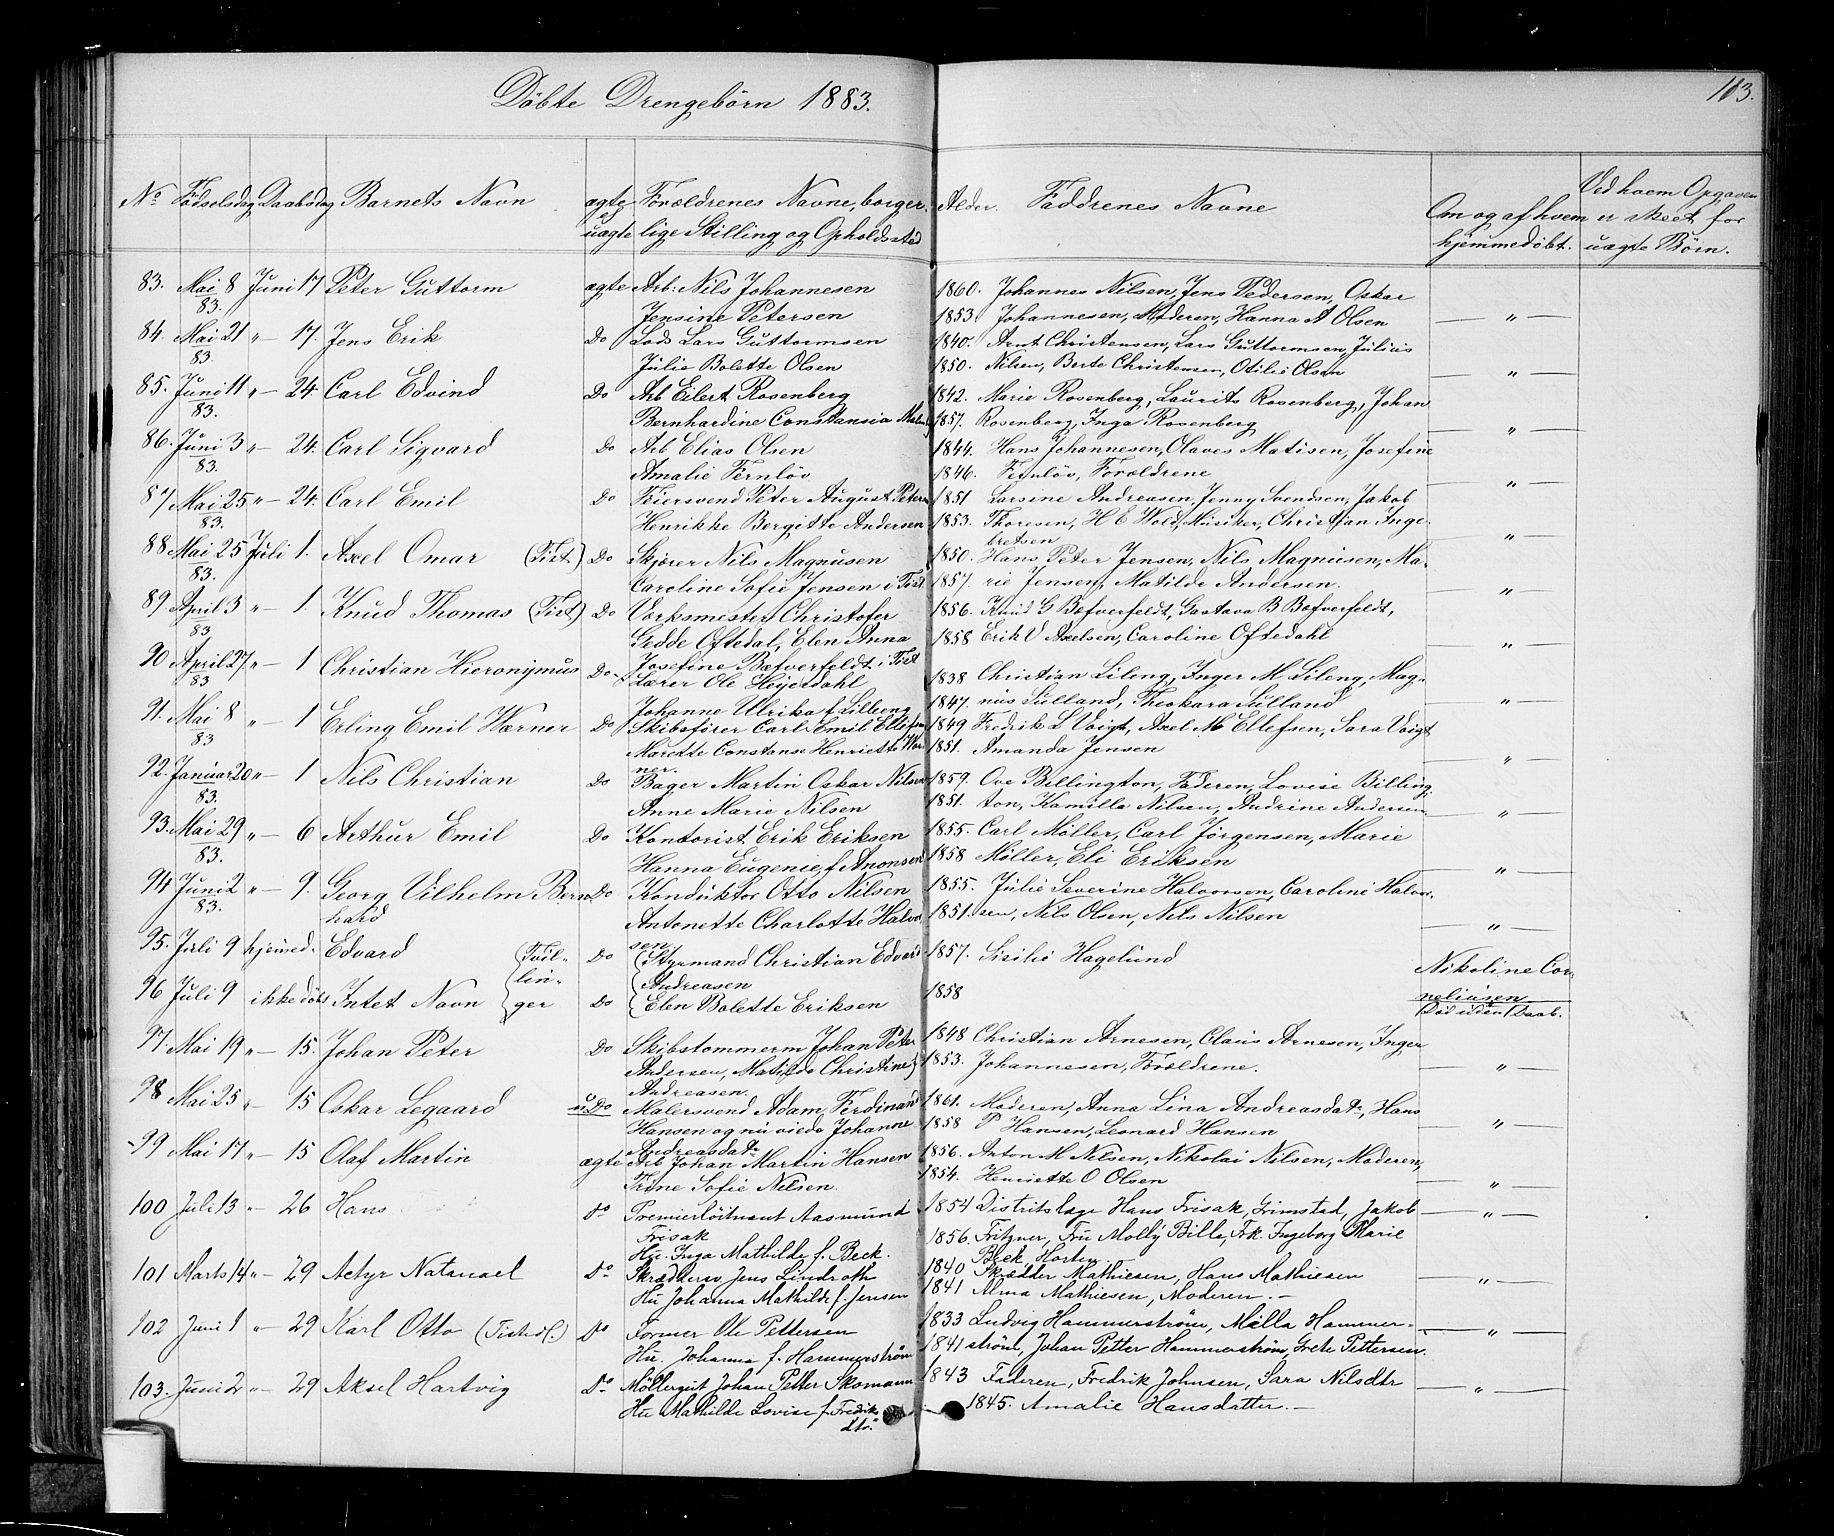 Döbte Drengebörn 1883.
113.
No Födselsdag Daabsdag Barnets Navn ægte Forældrenes Navne, borger Alder. Faddrenes Navne Om og af hvem Ved hvem Opgaven
uægte lige Stilling og Opholdssted hjemmedöbt. er skeet for
uægte Börn.
83. Mai 8 Juni 17 Peter Guttorm ægte Arb: Nils Johannesen 1860. Johannes Nilsen, Jens Pedersen, Oskar
83. Jensine Petersen 1853. Johannesen, Moderen, Hanna A Olsen — " —
84. Mai 21 " — 17. Jens Erik Do Lods Lars Guttormsen 1840. Arnt Christensen, Lars Guttormsen, Julius
83. Julie Bolette Olsen 1850. Nilsen, Berte Christensen, Otilie Olsen — " —
85. Juni 11 " — 24. Carl Edvind Do Arb Eilert Rosenberg 1842. Marie Rosenberg, Laurits Rosenberg, Johan
83. Bernhardine Constansia 1857. Rosenberg, Inga Rosenberg — " —
86. Juni 3 " — 24. Carl Sigvard Do Arb Elias Olsen 1844. Hans Johannesen, Olaves Matisen, Josefine
83. Amalie Fernlöv 1846. Fernlöv, Forældrene — " —
87 Mai 25 " — 24. Carl Emil Do Feiersvend Peter August Petersen 1851 Larsine Andreasen, Jenny Svendsen, Jakob
83. Henrikke Bergitte Andersen 1853. Thoresen, H E Wold, Musiker, Christian Inge-
bretsen — " —
88 Mai 25 Juli 1. Axel Omar (Tist.) Do Skjærer Nils Magnusen 1850. Hans Peter Jensen, Nils Magnusen, Ma-
83. Caroline Sofie Jensen i Tist 1857. rie Jensen, Matilde Andersen. — " —
89 April 3 " — 1 Knud Thomas (Tist) Do Værksmester Christofer 1856. Knud G Bæfverfeldt, Gustava B Bæfverfeldt,
83 Gedde Oftedal, Elen Anna 1858 Erik V Axelsen, Caroline Oftedahl — " —
Josefine Bæfverfeldt i Tist
90 April 27 " — 1 Christian Hieronymus Do Lærer Ole Heyerdahl 1838 Christian Lileng, Inger M Lileng, Mag-
83 Johanne Ulrika f. Lilleng 1847. nus Sulland, Theokara Sulland — " —
91. Mai 8 " — 1 Erling Emil Wærner Do Skibsfører Carl Emil Ellefsen 1849 Fredrik L Voigt, Axel M Ellefsen, Sara Voigt
83 Marette Constanse Henriette Wær 1851. Amanda Jensen — " —
ner.
92. Januar 20 " — 1 Nils Christian Do Bager Martin Oskar Nilsen 1859. Ove Billington, Faderen, Lovise Billing-
83. Anne Marie Nilsen 1851. ton, Kamilla Nilsen, Andrine Andersen — " —
93. Mai 29 " — 6 Arthur Emil Do Kontorist Erik Eriksen 1855. Carl Möller, Carl Jörgensen, Marie
83. Hanna Eugenie f. Amonsen 1858 Möller, Eli Eriksen — " —
94 Juni 2 " — 9. Georg Vilhelm Bern Do Konduktör Otto Nilsen 1855. Julie Severine Halvorsen, Caroline Halvor-
83. hard Antonette Charlotte Halvor 1851. sen, Nils Olsen, Nils Nilsen — " —
sen.
95. Juli 9 hjemmed. Edvard (Tvil- Do Styrmand Christian Edvard 1857. Sisilie Hagelund Nikoline Cor-
lin- Andreasen neliusen
96 Juli 9 ikke döbt Intet Navn ger Do Elen Bolette Eriksen 1858 Död uden Daab.
97. Mai 19 " — 15. Johan Peter Do Skibstømmerm Johan Peter 1848 Christian Arnesen, Claus Arnesen, Inger
Andersen, Matilde Christine 1853. Johannesen, Forældrene. — " —
Andreasen
98 Mai 25 " — 15 Oskar Legaard u.Do Malersvend Adam Ferdinand 1861. Moderen, Anna Lina Andreasdat., Hans
Hansen og nu viede Johanne 1858 P Hansen, Leonard Hansen — " —
Andreasdat.
99 Mai 17 " — 15 Olaf Martin ægte Arb Johan Martin Hansen 1856. Anton M Nilsen, Nikolai Nilsen, Moderen,
Trine Sofie Nilsen. 1854. Henriette O Olsen — " —
100 Juli 13 " — 26 Hans Do Premierlöitnant Aasmund 1854 Distritslæge Hans Frisak, Grimstad, Jakob — " —
Frisak 1856. Fritzner, Fru Molly Bille, Frk Ingeborg Marie
Hu. Inga Mathilde f. Beck. Beck, Horten
101 Marts 14 " — 29 Actyr Natanael Do Skrædkersv Jens Lindroth 1840 Skrædder Mathiesen, Hans Mathiesen — " —
Hu Johanna Mathilde f. Jensen 1841 Alma Mathiesen, Moderen. —
102 Juni 1 " — 29 Karl Otto (Tistedl.) Do Former Ole Pettersen 1833 Ludvig Hammerström, Milla Hammer- — " —
Hu. Johanna f. Hammerström 1841 ström, Johan Petter Hammerström, Grete Pettersen.
103. Juni 2 " — 29 Aksel Hartvig Do Möllergut Johan Petter Skomann 1843 Faderen, Fredrik Johnsen, Sara Nilsdtr — " —
Hu Mathilde Lovise f. Fredriks 1845. Amalie Hansdatter. —
dtr.